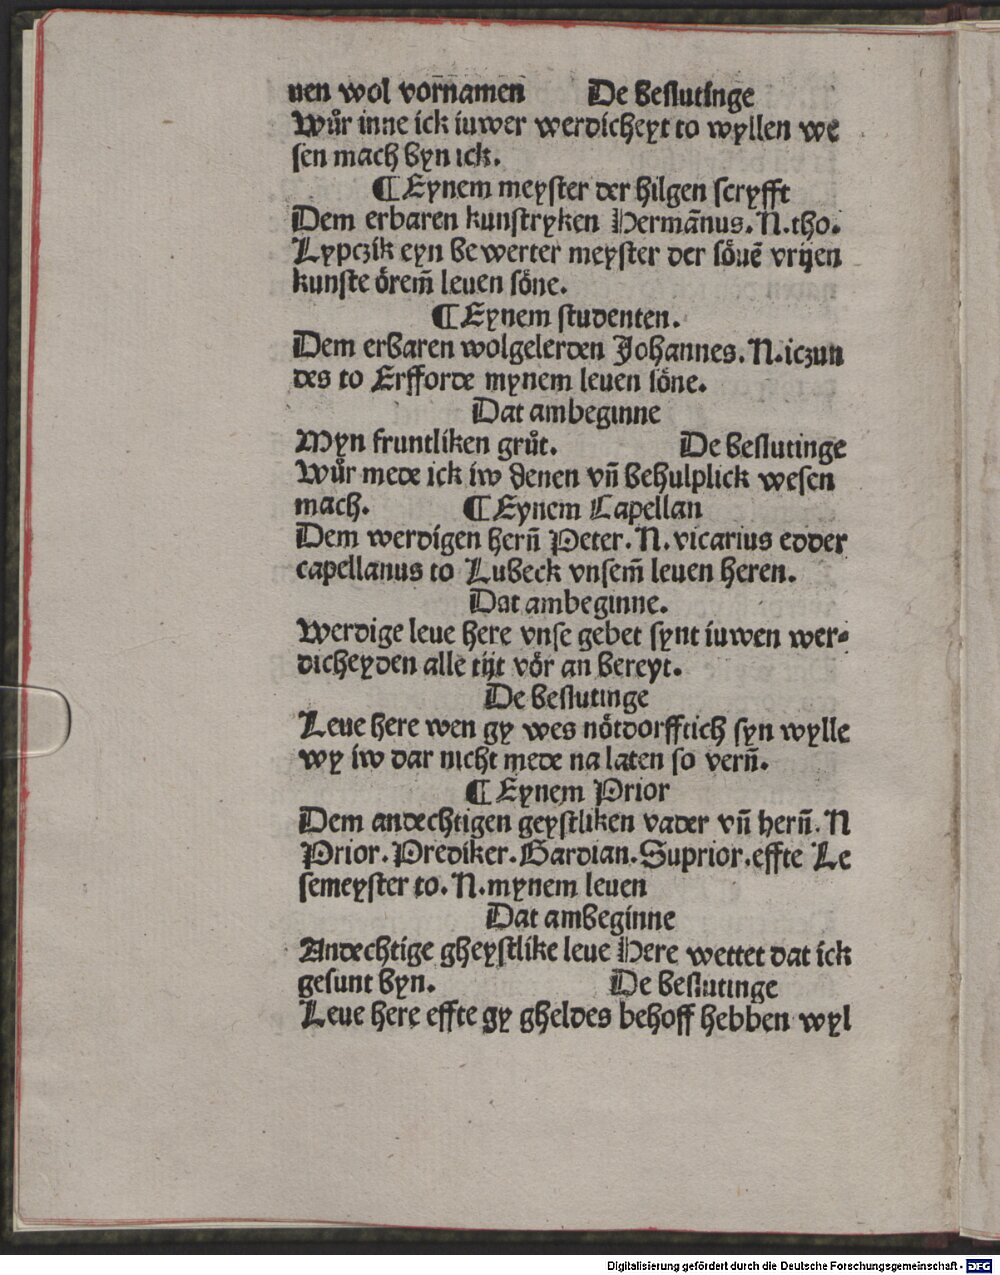 uen wol vornamen De beslutinge
Wůr inne ick iuwer werdicheyt to wyllen we
sen mach byn ick.
¶ Eynem meyster der hilgen scryfft
Dem erbaren kunstryken Hermānus. N. tho.
Lypczik eyn bewerter meyster der söuē vrijen
kunste örem̄ leuen söne.
¶ Eynem studenten.
Dem erbaren wolgelerden Johannes. N. iczun
des to Erfforde mynem leuen söne.
Dat ambeginne
Myn fruntliken grůt. De beslutinge
Wůr mede ick iw denen vn̄ behulplick wesen
mach. ¶ Eynem Capellan
Dem werdigen hern̄ Peter. N. vicarius edder
capellanus to Lubeck vnsem̄ leuen heren.
Dat ambeginne.
Werdige leue here vnse gebet synt iuwen wer-
dicheyden alle tijt vör an bereyt.
De beslutinge
Leue here wen gy wes nötdorfftich syn wylle
wy iw dar nicht mede na laten so vern̄.
¶ Eynem Prior
Dem andechtigen geystliken vader vn̄ hern̄. N
Prior. Prediker. Gardian. Suprior. effte Le
semeyster to. N. mynem leuen
Dat ambeginne
Andechtige gheystlike leue Here wettet dat ick
gesunt byn. De beslutinge
Leue here effte gy gheldes behoff hebben wyl
Digitalisierung gefördert durch die Deutsche Forschungsgemeinschaft - DFG